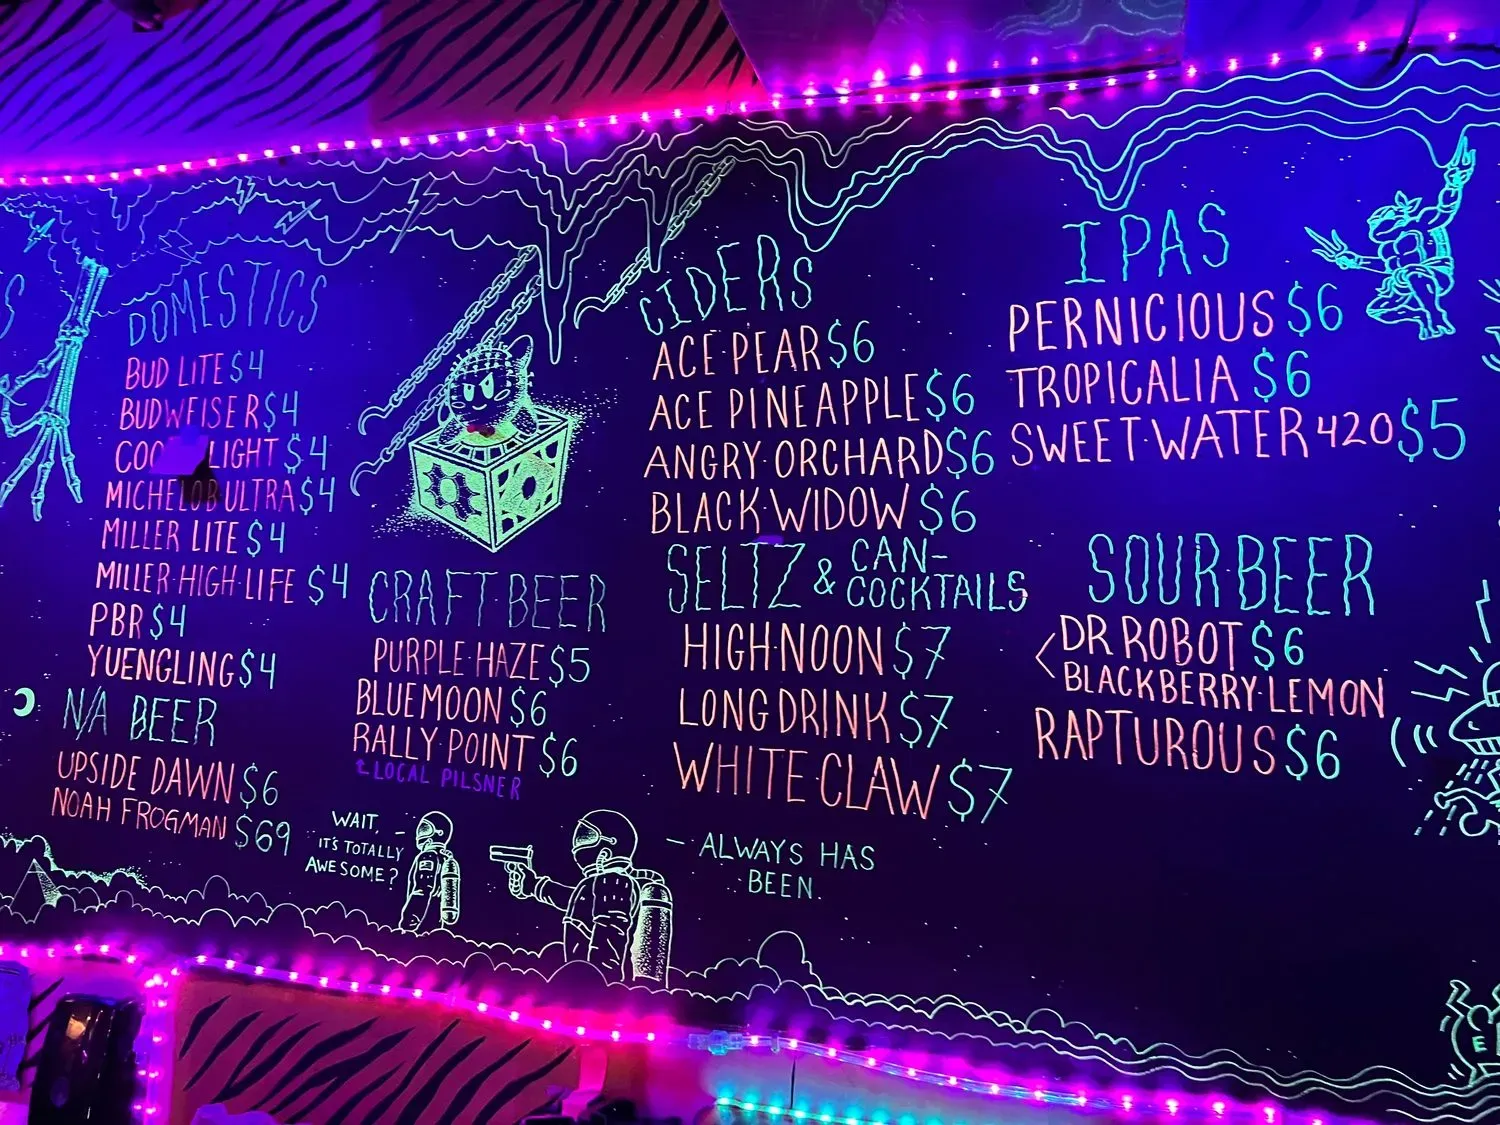 S
DOMESTICS
BUD LITE $4
BUDWEISER $4
COO LIGHT $4
MICHELOB ULTRA $4
MILLER LITE $4
MILLER HIGH LIFE $4
PBR $4
YUENGLING $4
N/A BEER
UPSIDE DAWN $6
NOAH FROGMAN $69
CRAFT BEER
PURPLE HAZE $5
BLUE MOON $6
RALLY POINT $6
LOCAL PILSNER
WAIT,
IT'S TOTALLY
AWESOME?
CIDERS
ACE PEAR $6
ACE PINEAPPLE $6
ANGRY ORCHARD $6
BLACK WIDOW $6
SELTZ & CAN-
COCKTAILS
HIGH NOON $7
LONG DRINK $7
WHITE CLAW $7
- ALWAYS HAS
BEEN.
IPAS
PERNICIOUS $6
TROPICALIA $6
SWEET WATER 420 $5
SOUR BEER
DR ROBOT $6
BLACKBERRY LEMON
RAPTUROUS $6
E